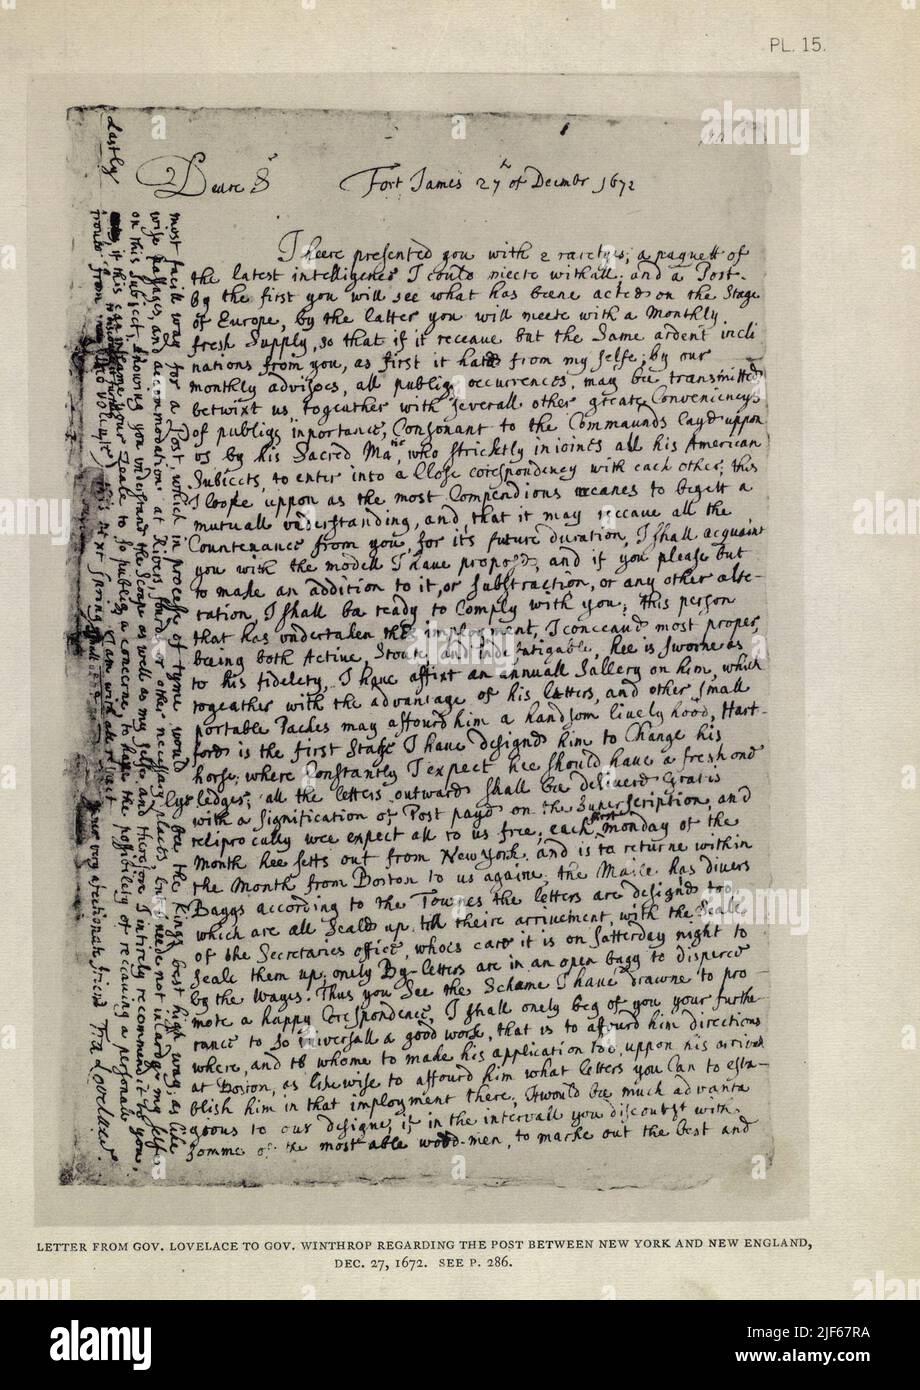 PL. 15.
Deare Sr
Fort James 27th of Decembr 1672
I heere presented you with 2 raretyes, a paquett of
the latest intelligence I could meete withall, and a Post.
by the first you will see what has beene acted on the Stage
of Europe, by the latter you will meete with a Monthly
fresh Supply, so that if it receaue but the Same ardent incli
nations from you, as first it hath from my selfe, by our
monthly advisoes, all publiq occurrences, may bee transmitted
betwixt us, togeather with severall other greate Conveniencys
of publiq inportance, Consonant to the Commaunds layd uppon
us by his Sacred Matie, who strictly injoines all his American
Subiects, to enter into a Close corespondency with each other, this
I looke uppon as the most Compendious meanes to begett a
mutuall understanding, and that it may receaue all the
Countenance from you, for its future duration, I shall acquaint
you with the modell I haue proposd, and if you please but
to make an addition to it, or Substraction, or any other alte-
ration, I shall be ready to Comply with you, this person
that has undertaken the imployment, I conceaud most proper,
being both Active, Stout, and indefatigable, hee is sworne as
to his fidelety, I haue affixt an annuall Sallery on him, which
togeather with the advantage of his letters, and other small
portable Packes may affourd him a handsom liuely hood, Hart-
ford is the first Stage I haue designd him to Change his
horse, where Constantly I expect hee should have a fresh one
lye ledger; all the letters outward shall be deliuerd Gratis
with a signification of Post payd on the Superscription, and
reciprocally wee expect all to us free, each first monday of the
Month hee setts out from New York, and is to returne within
the Month from Boston to us againe, the Maile has divers
Baggs according to the Townes the letters are designd too,
which are all seald up till theire arriuement, with the Seale
of the Secretaries office, whoes care it is on Satterday night to
seale them up, onely By-letters are in an open bagg to disperce
by the wayes. Thus you See the Scheame I haue drawne to pro
mote a happy Corespondence, I shall onely beg of you your furthe-
rance to so universall a good work, that is to affourd him directions
where, and to whome to make his application too, uppon his arrivall
at Boston, as likewise to affourd him what letters you Can to esta-
blish him in that imployment there, It would be much advanta
geous to our designe, if in the intervall you discourst with
somme of the most able wood-men, to marke out the best and
most facill way for a Post, which in processe of tyme would bee the Kings best high way, as like
wise passages, and accommodation at Rivers, fords, or other necessary places, but I neede not inlarge my selfe
on this Subiect, knowing you understand the Scope as well as my selfe, and therefore I intirely recommend it to you,
Lastly
if this can inflame your Zeale to so publiq a concerne, to have the possibility of receauing a personale
from this next spring I am with all respect your very affectionate freind Fra Lovelace.
LETTER FROM GOV. LOVELACE TO GOV. WINTHROP REGARDING THE POST BETWEEN NEW YORK AND NEW ENGLAND,
DEC. 27, 1672. SEE P. 286.
alamy
alamy
Image ID: 2JF67RA
www.alamy.com